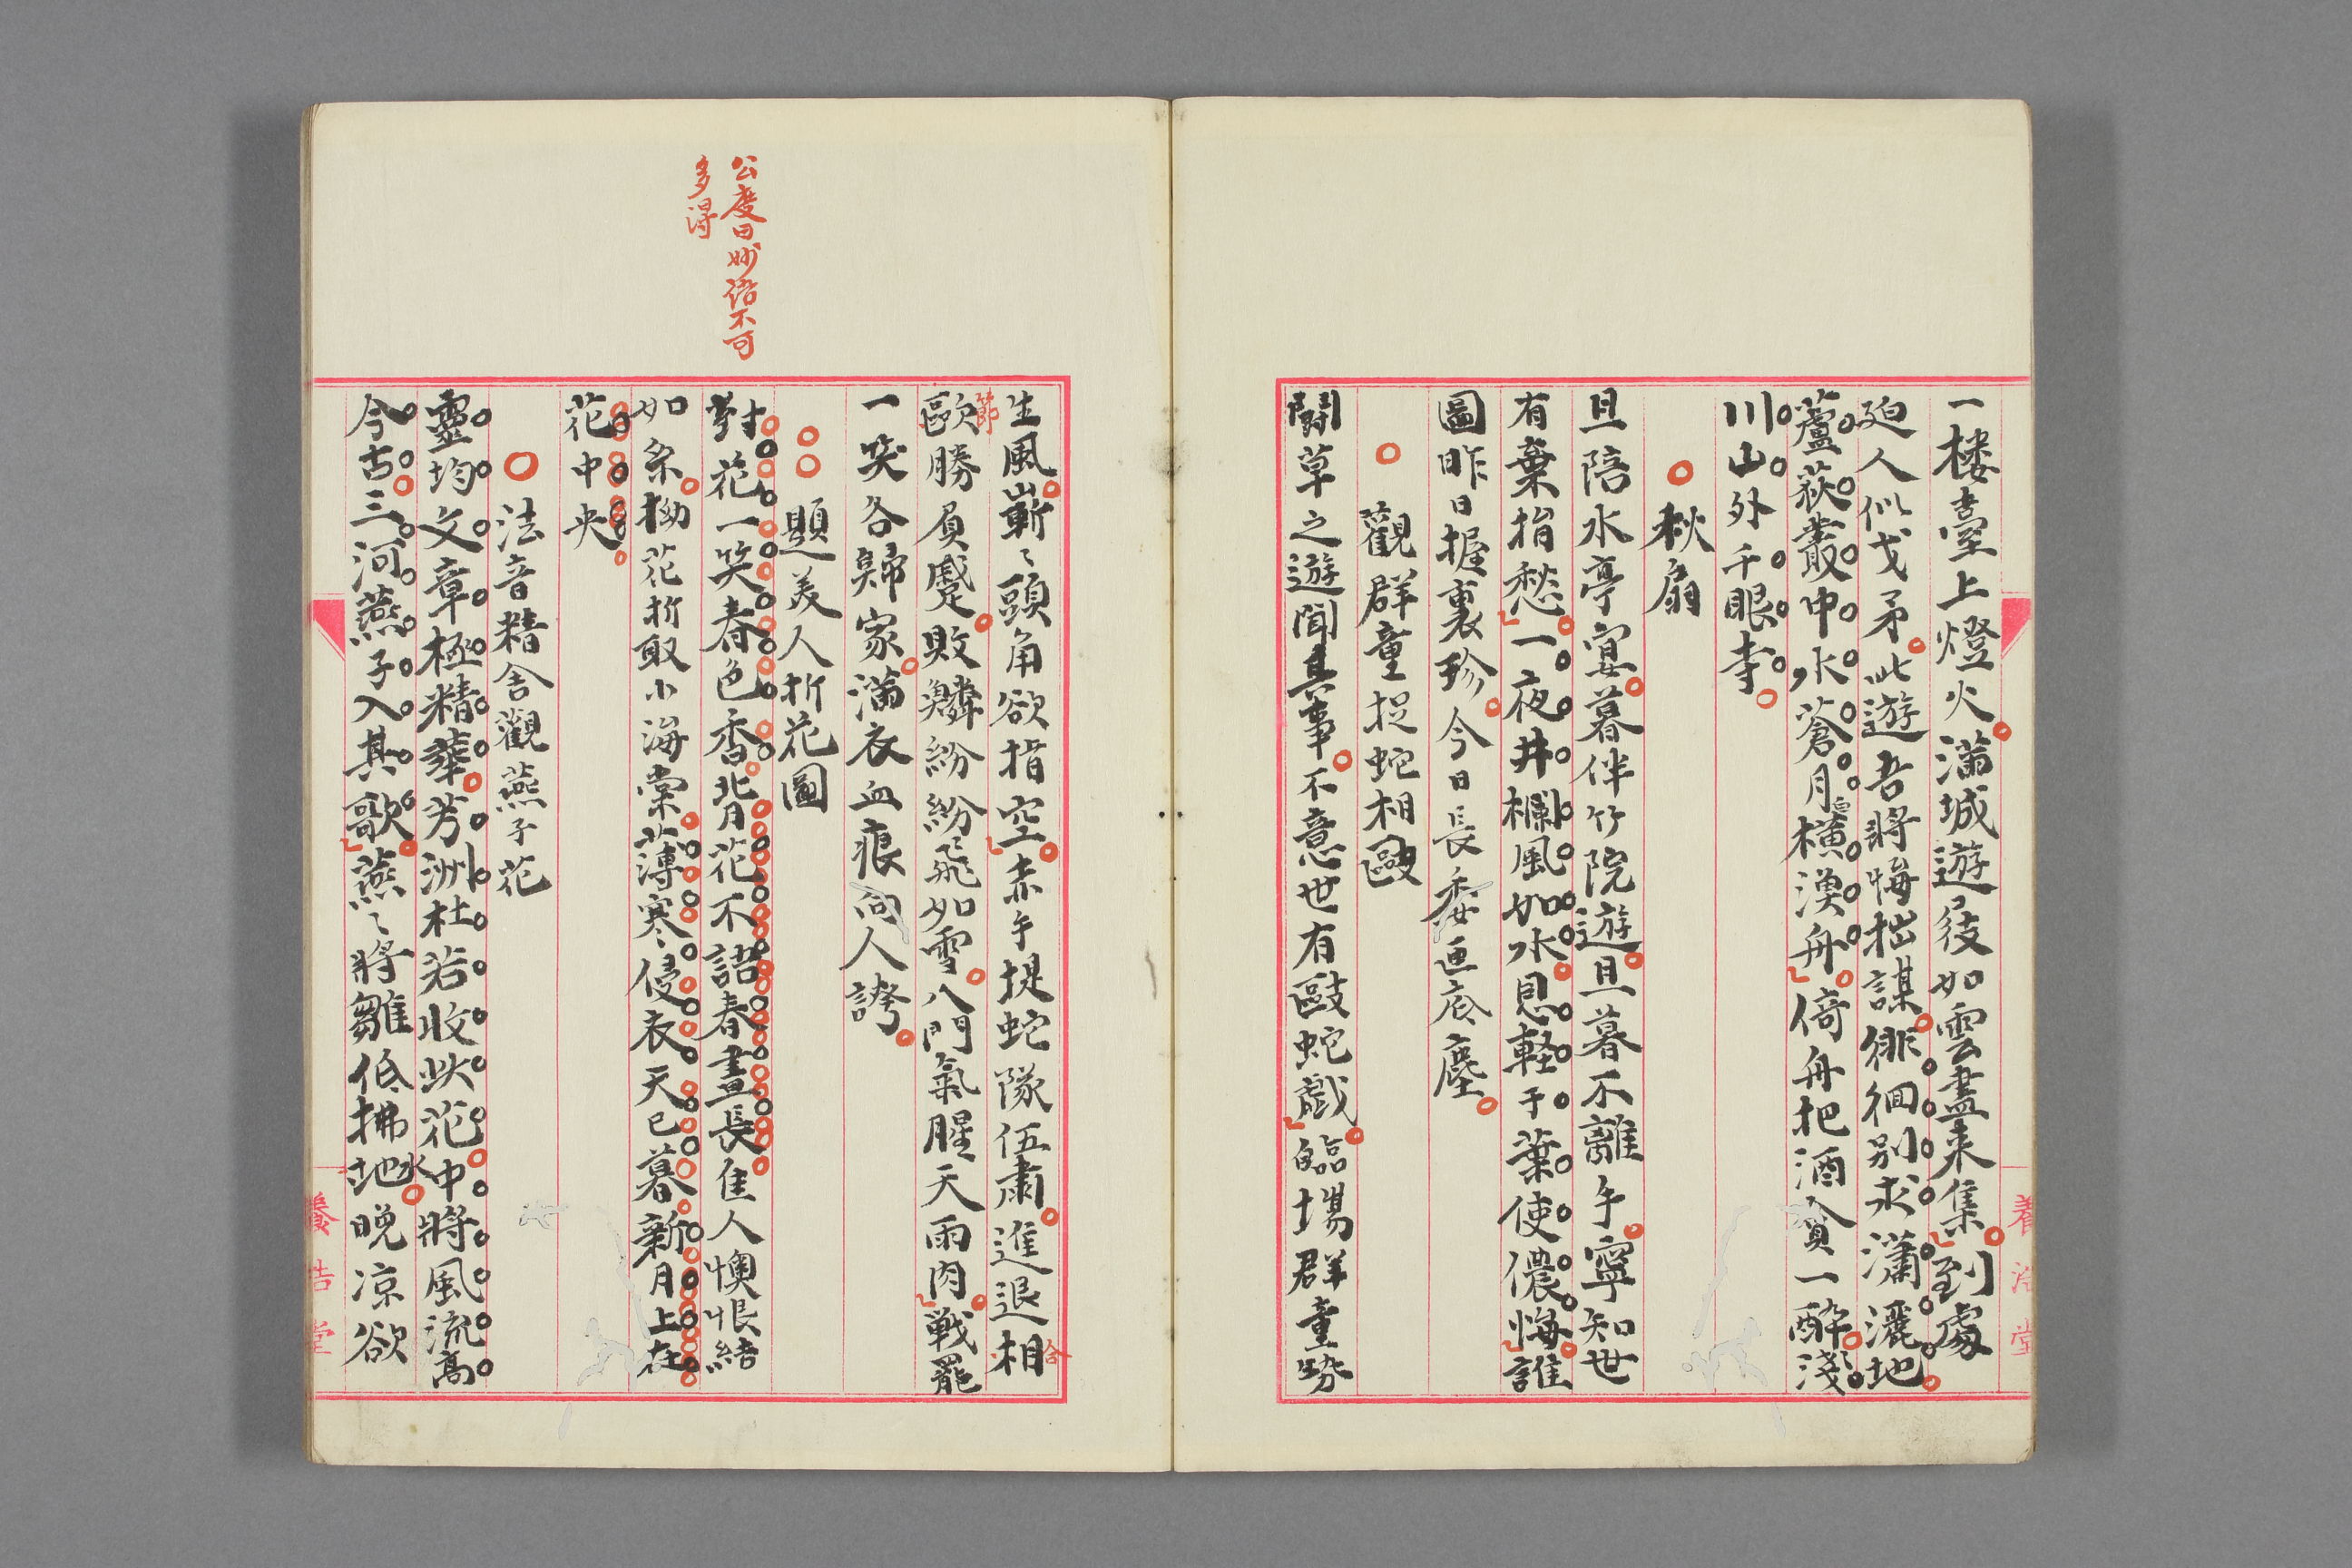 一楼臺上燈火滿城遊屐如雲盡来集到處
廹人似戈矛此遊吾將悔拙謀徘徊別求瀟灑地
蘆荻叢中水蒼月橫漠舟倚舟把酒貪一醉淺
川山外千眼寺
秋扇
旦陪水亭宴暮伴竹院遊旦暮不離手寧知世
有棄捐愁一夜井欄風如水恩輕于葉使儂悔誰
圖昨日握裏珍今日長委匣底塵
觀群童捉蛇相毆
鬪草之遊聞其事不意世有毆蛇戲臨場群童勢
生風嶄〻頭角欲指空赤手提蛇隊伍肅進退相
合
節
歐勝負蹙敗鱗紛紛飛如雪八門氣腥天雨肉戰罷
一笑各歸家滿衣血痕向人誇
題美人折花圖
公度曰妙語不可
多得
對花一笑春色香背花不語春晝長佳人懊恨結
如糸拗花折取小海棠薄寒侵衣天已暮新月上在
花中央
法音精舍觀燕子花
靈均文章極精華芳洲杜若收此花中將風流高
今古三河燕子入其歌燕〻將雛低拂地晚凉欲
水
養浩堂
養浩堂